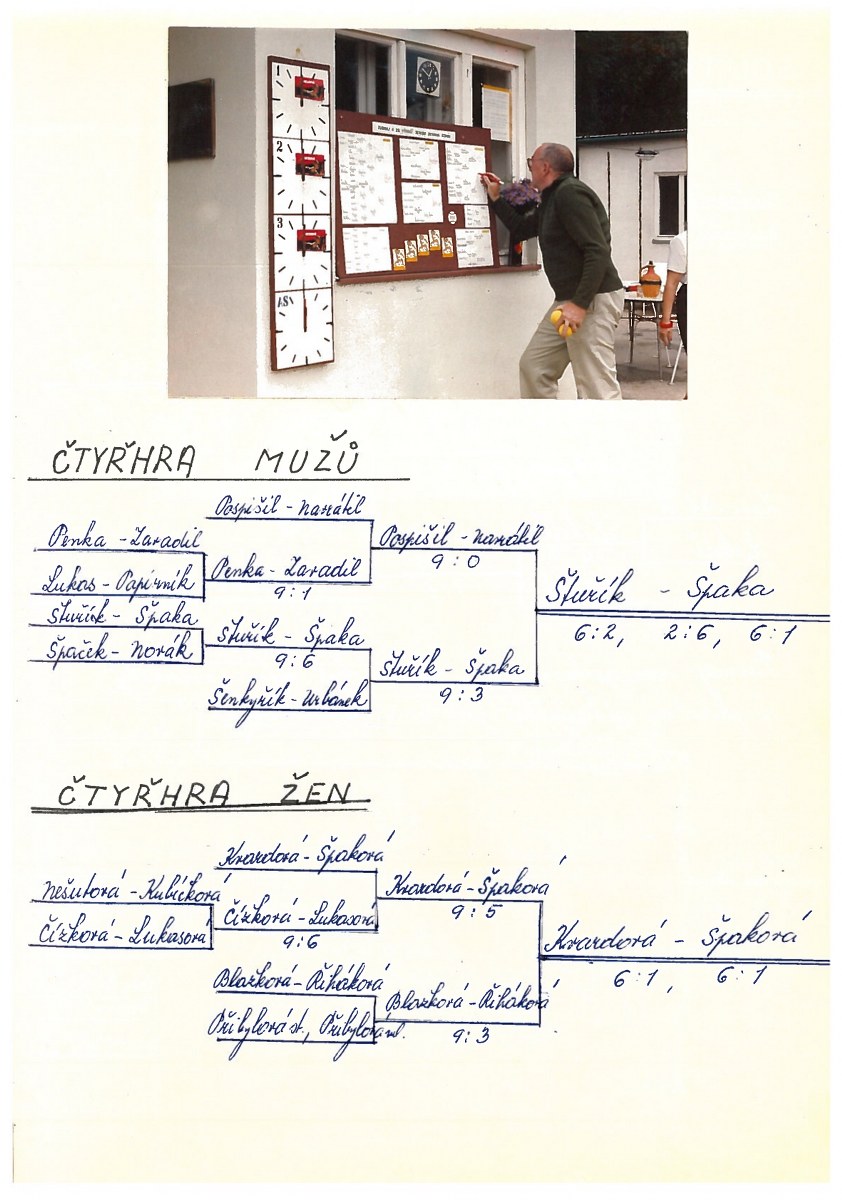 1
2
3
ČTYŘHRA MUŽŮ
Pospíšil - Navrátil
Penka - Zaradil
Pospíšil - Navrátil
9:0
Lukas - Papírník
Penka - Zaradil
9:1
Štuřík - Špaka
6:2, 2:6, 6:1
Štuřík - Špaka
Špaček - Novák
Štuřík - Špaka
9:6
Štuřík - Špaka
9:3
Šenkyřík - Urbánek
ČTYŘHRA ŽEN
Kvardová - Špaková
Nešutová - Kubíčková
Kvardová - Špaková
9:5
Čížková - Lukasová
Čížková - Lukasová
9:6
Kvardová - Špaková
6:1, 6:1
Blažková - Řiháková
Blažková - Řiháková
9:3
Přibylová st., Přibylová ml.